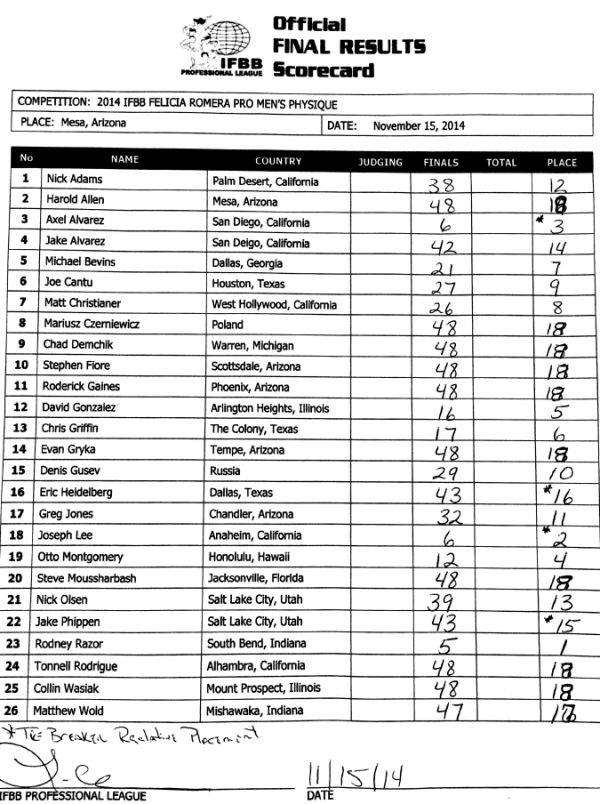 Official
FINAL RESULTS
IFBB Scorecard
PROFESSIONAL LEAGUE
COMPETITION: 2014 IFBB FELICIA ROMERA PRO MEN'S PHYSIQUE
PLACE: Mesa, Arizona DATE: November 15, 2014
No NAME COUNTRY JUDGING FINALS TOTAL PLACE
1 Nick Adams Palm Desert, California 38 12
2 Harold Allen Mesa, Arizona 48 18
3 Axel Alvarez San Diego, California 6 * 3
4 Jake Alvarez San Deigo, California 42 14
5 Michael Bevins Dallas, Georgia 21 7
6 Joe Cantu Houston, Texas 27 9
7 Matt Christianer West Hollywood, California 26 8
8 Mariusz Czerniewicz Poland 48 18
9 Chad Demchik Warren, Michigan 48 18
10 Stephen Fiore Scottsdale, Arizona 48 18
11 Roderick Gaines Phoenix, Arizona 48 18
12 David Gonzalez Arlington Heights, Illinois 16 5
13 Chris Griffin The Colony, Texas 17 6
14 Evan Gryka Tempe, Arizona 48 18
15 Denis Gusev Russia 29 10
16 Eric Heidelberg Dallas, Texas 43 *16
17 Greg Jones Chandler, Arizona 32 11
18 Joseph Lee Anaheim, California 6 * 2
19 Otto Montgomery Honolulu, Hawaii 12 4
20 Steve Moussharbash Jacksonville, Florida 48 18
21 Nick Olsen Salt Lake City, Utah 39 13
22 Jake Phippen Salt Lake City, Utah 43 *15
23 Rodney Razor South Bend, Indiana 5 1
24 Tonnell Rodrigue Alhambra, California 48 18
25 Collin Wasiak Mount Prospect, Illinois 48 18
26 Matthew Wold Mishawaka, Indiana 47 17
* Tie Breaker Relative Placement
11/15/14
IFBB PROFESSIONAL LEAGUE DATE